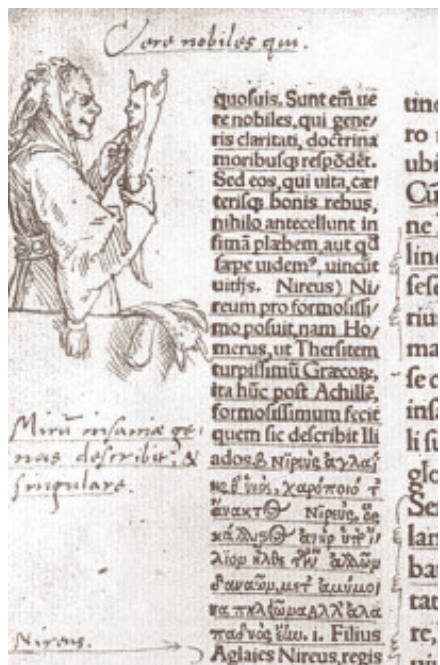 Vere nobiles qui.
quosuis. Sunt em̃ ue
re nobiles, qui gene/
ris claritati, doctrina
moribusq; respõdẽt.
Sed eos, qui uita, cæ/
terisq; bonis rebus,
nihilo antecellunt in
fimã plæbem, aut qđ
sæpe uidemꝰ, uincũt
uitijs. Nireus) Ni/
reum pro formosissi/
mo posuit, nam Ho/
merus, ut Thersitem
turpissimũ Græcoꝝ,
ita hũc post Achillẽ,
formosissimum fecit
quem sic describit Ili
ados.β Νιρεὺς ἀγλαΐ
ης θ' υἱὸς, χαρόποιό τ'
ἄνακτος Νιρεὺς, ὃς
κάλλιστος ἀνὴρ ὑπὸ ἴ/
λιον ἦλθε τῶν ἄλλων
δαναῶν, μετ' ἀμύμο
να πηλείωνα. ἀλλ' ἀλα
παδνὸς ἔην. i. Filius
Aglaies Nireus, regis
Mirũ insaniæ ge-
nus describit, &
singulare.
Nireus.
unc
ro
ub
Cũ
ne
line
sese
riu
ma
se c
inf
li su
glo
Ser
lan
ba
tan
re,